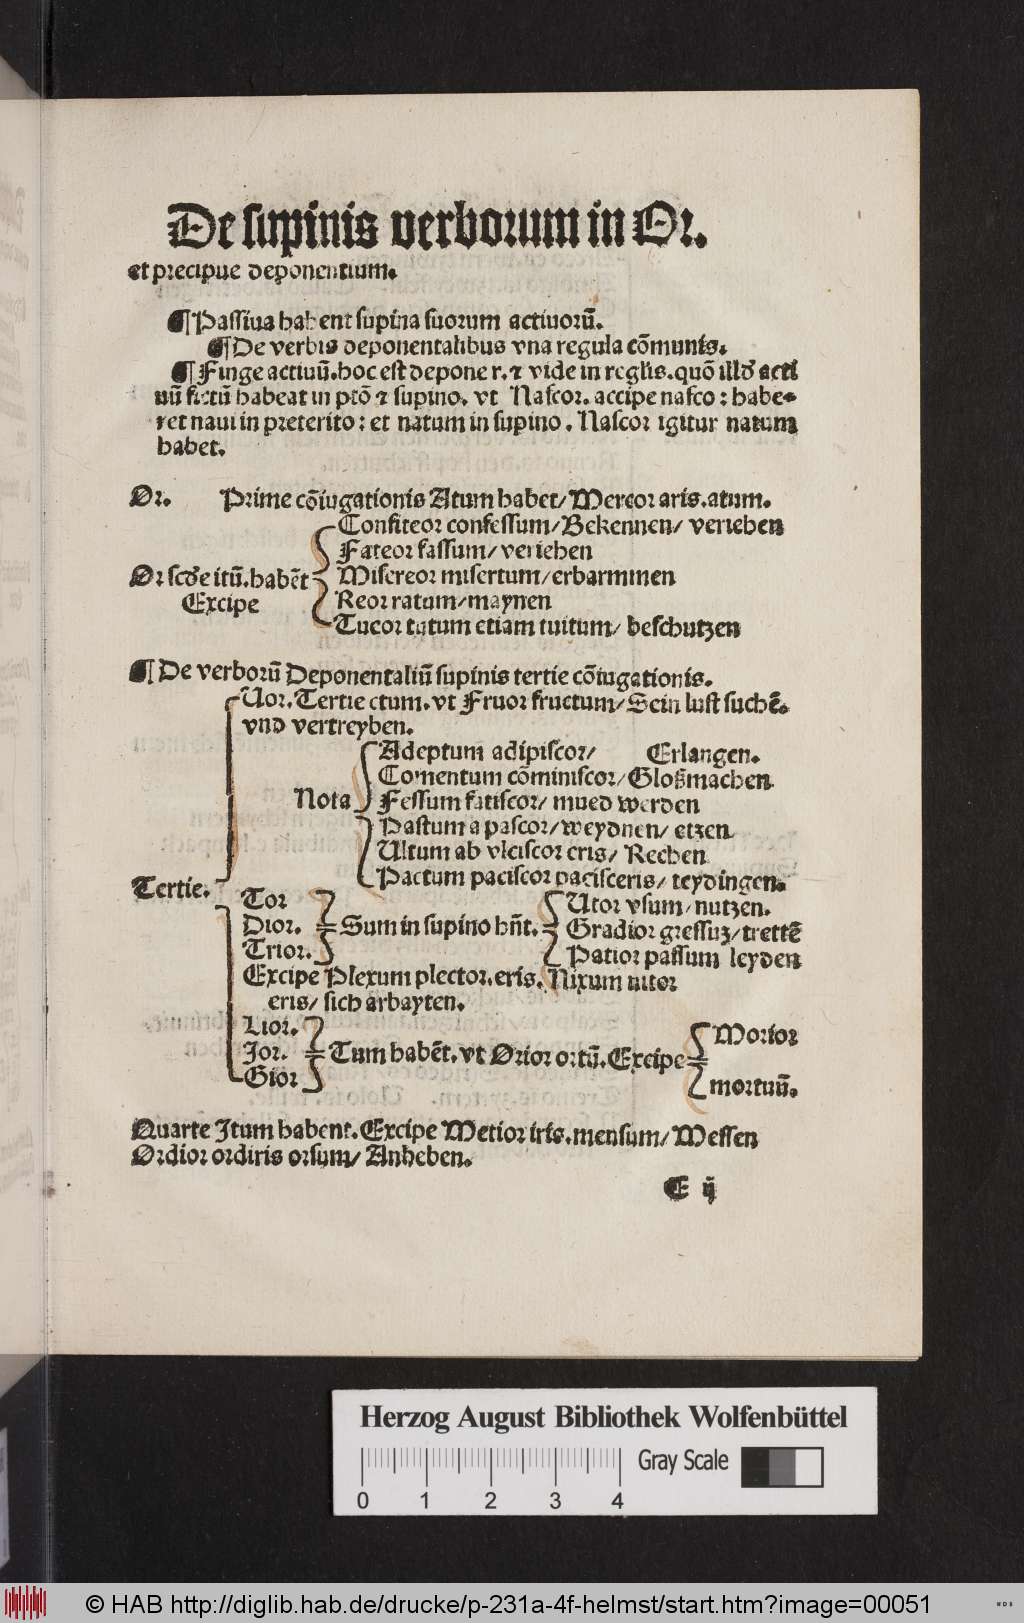 De supinis verborum in Or.
et precipue deponentium.
¶ Passiua habent supina suorum actiuorū.
¶ De verbis deponentalibus vna regula cōmunis.
¶ Finge actiuū. hoc est depone r. ⁊ vide in reglis. quō illd acti
uū fictū habeat in ptō ⁊ supino. vt Nascor. accipe nasco: habe-
ret naui in preterito: et natum in supino. Nascor igitur natum
habet.
Or. Prime cōiugationis Atum habet/ Mercor aris. atum.
Confiteor confessum/ Bekennen/ veriehen
Fateor fassum/ veriehen
Or scđe itū. habēt Misereor misertum/ erbarmmen
Excipe Reor ratum/ maynen
Tueor tutum etiam tuitum/ beschutzen
¶ De verborū Deponentaliū supinis tertie cōiugationis.
Uor. Tertie ctum. vt Fruor fructum/ Sein lust suchē.
vnd vertreyben.
Adeptum adipiscor/ Erlangen.
Comentum cōminiscor/ Gloßmachen
Nota Fessum fatiscor/ mued werden
Pastum a pascor/ weydnen/ etzen
Ultum ab vlciscor eris/ Rechen
Pactum paciscor pacisceris/ teydingen.
Tertie.
Tor Utor vsum/ nutzen.
Dior. Sum in supino hn̄t. Gradior gressuʒ/ trettē
Trior. Patior passum leyden
Excipe Plexum plector. eris. Nixum nitor
eris/ sich arbayten.
Lior. Morior
Ior. Tum habēt. vt Orior ortū. Excipe
Gior mortuū.
Quarte Itum habent. Excipe Metior iris. mensum/ Messen
Ordior ordiris orsum/ Anheben.
E ij
Herzog August Bibliothek Wolfenbüttel
Gray Scale
0 1 2 3 4
© HAB http://diglib.hab.de/drucke/p-231a-4f-helmst/start.htm?image=00051